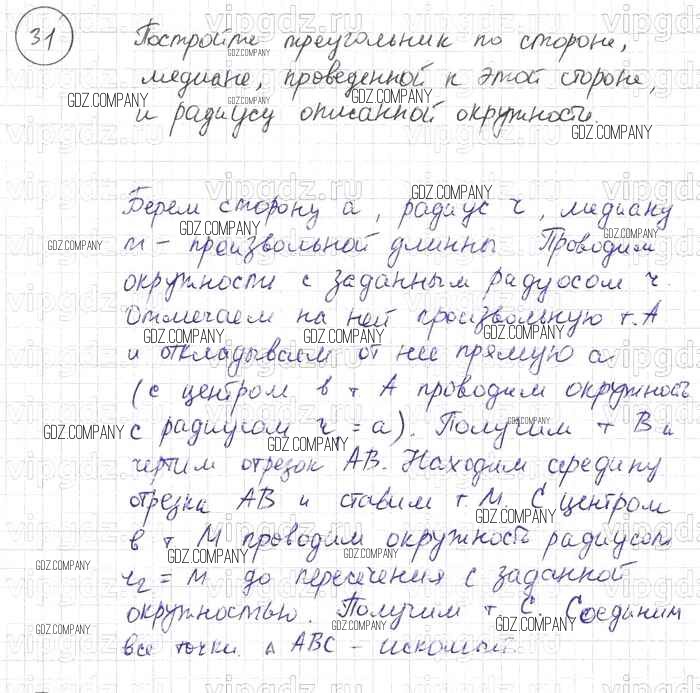 31 Постройте треугольник по стороне,
медиане, проведенной к этой стороне,
и радиусу описанной окружности.
Берем сторону a, радиус r, медиану
m - произвольной длинны Проводим
окружности с заданным радуосом r.
Отмечаем на ней произвольную т. A
и откладываем от нее прямую a
(с центром в т A проводим окружность
с радиусом r₁ = a). Получим т B и
чертим отрезок AB. Находим середину
отрезка AB и ставим т. M. С центром
в т M проводим окружность радиусом
r₂ = m до пересечения с заданной
окружностью. Получим т C. Соединим
все точки. ∆ ABC - искомый.
vipgdz.ru
GDZ.COMPANY